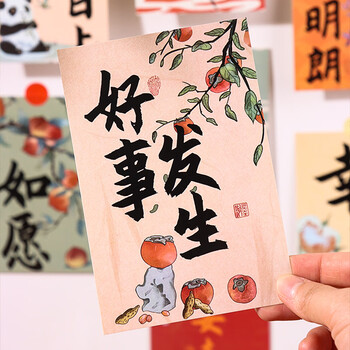 好事
发生
如愿
明朗
上